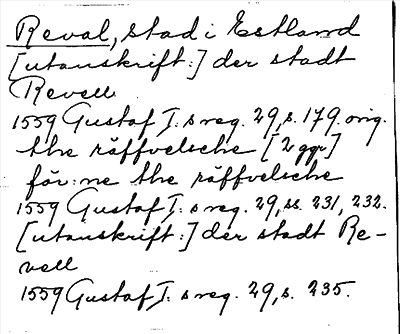 Reval, stad i Estland
[utanskrift:] der stadt
Revell
1559 Gustaf I:s reg. 29, s. 179. orig.
the räffvelsche [2 ggr]
för:ne the räffvelsche
1559 Gustaf I:s reg. 29, ss. 231, 232.
[utanskrift:] der stadt Re-
vell
1559 Gustaf I:s reg. 29, s. 235.